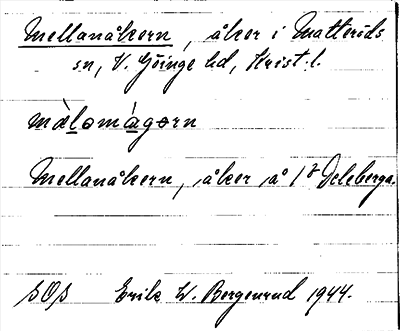 Mellanåkern, åker i Matteröds
sn, V. Göinge hd, Krist. l.
màlomàgorn
Mellanåkern, åker å 1² Deleberga.
SOS Erik W. Bergenrud 1944.